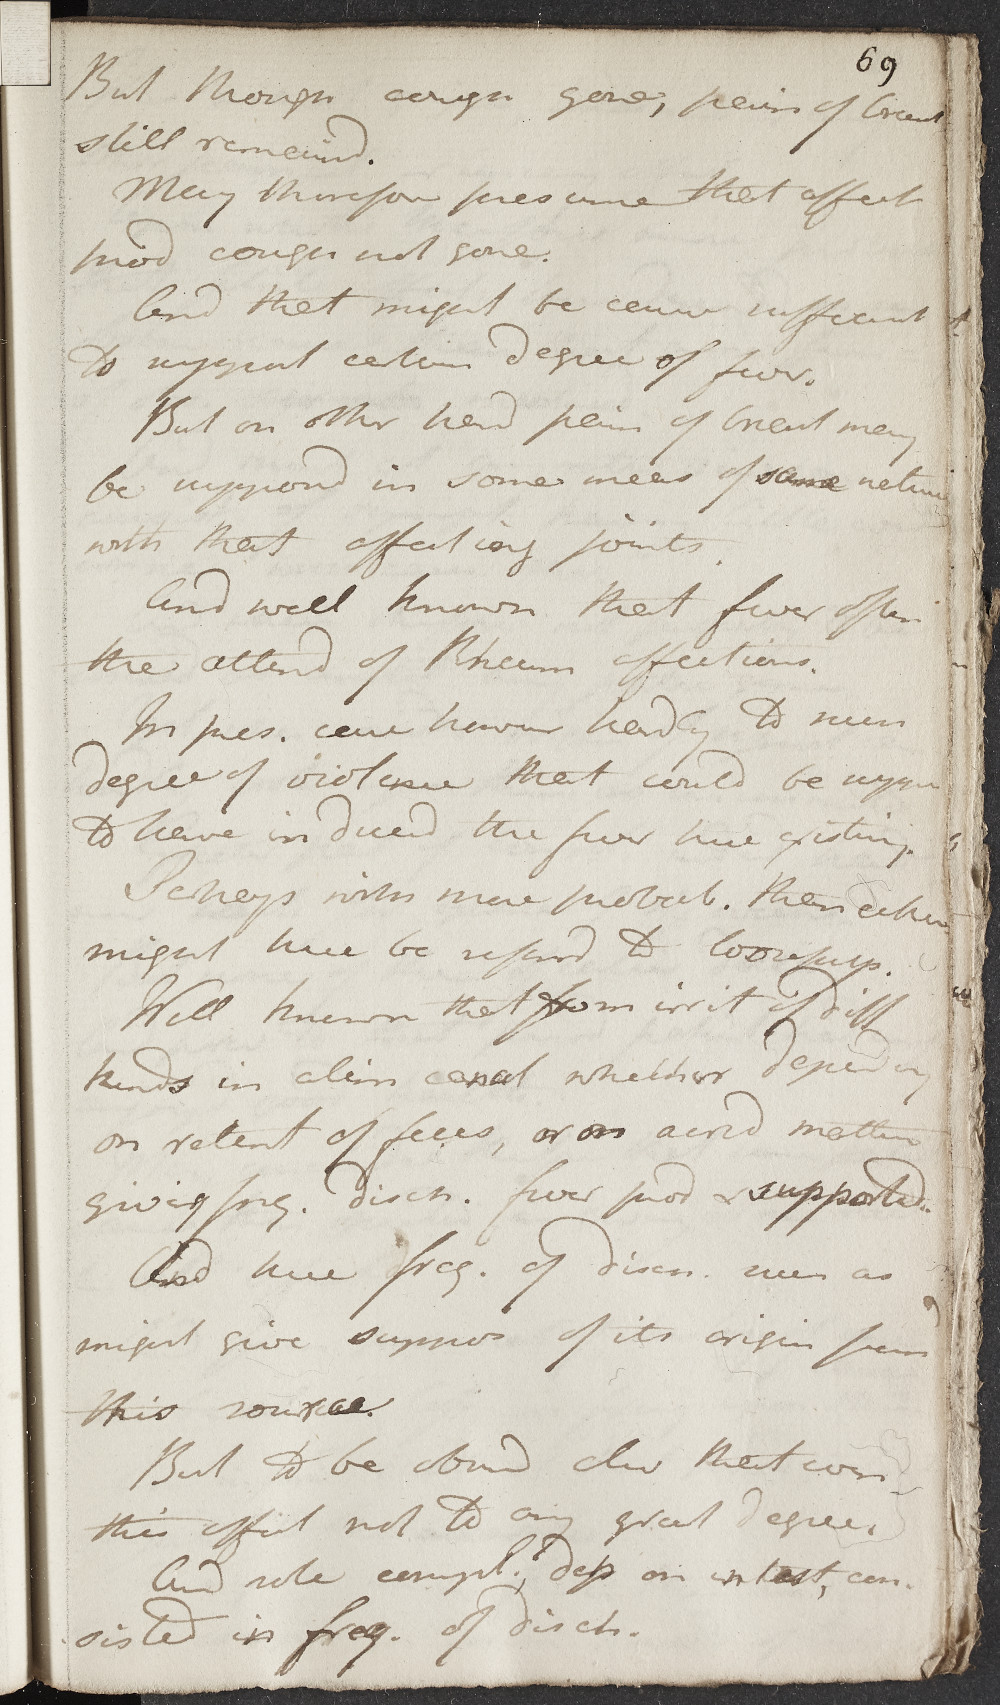 69
But though cough gone, pain of breast
still remaind.
May therefore presume that affect
prod cough not gone.
And that might be cause sufficient
to support certain degree of fever.
But on other hand pain of breast may
be supposd in some meas of same nature
with that affecting joints.
And well known that fever often
the attend of Rheum affections.
In pres. case however hardly to such
degree of violence that could be suppo
to have induced the fever here existing.
Perhaps with more probab. than either
might here be referd to looseness.
Well known that from irrit of diff
kinds in alim canal whether depending
on retent of feces, or on acrid matter
giving freq. disch. fever prod & supported.
And here freq. of disch. such as
might give suppos of its origin from
this source.
But to be obserd also that even
this affect not to any great degree.
And sole compl. dep on intest, con-
sisted in freq. of disch.